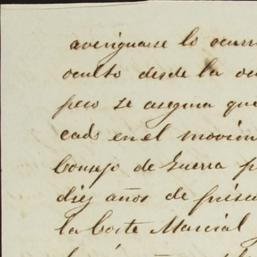 averiguarse lo ocurr
oculto desde la oc
pero se asegura que
cado en el movim
Consejo de Guerra p
diez años de presid
la Corte Marcial